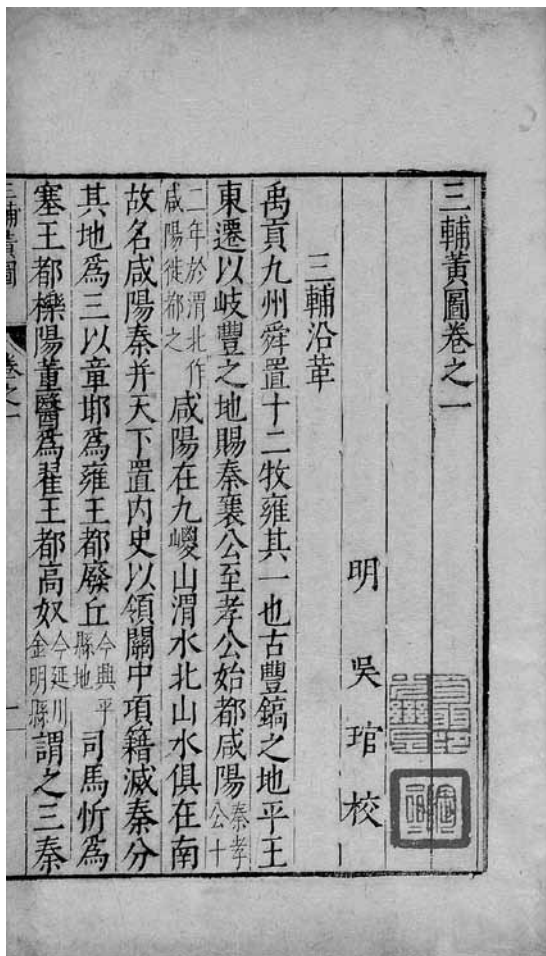 三輔黃圖卷之一
明 吳琯校
三輔沿革
禹貢九州舜置十二牧雍其一也古豐鎬之地平王
東遷以岐豐之地賜秦襄公至孝公始都咸陽秦孝公十
二年於渭北作咸陽徙都之咸陽在九嵕山渭水北山水俱在南
故名咸陽秦并天下置內史以領關中項籍滅秦分
其地爲三以章邯爲雍王都廢丘今興平縣地司馬忻爲
塞王都櫟陽董翳爲翟王都高奴今延川金明縣謂之三秦
三輔黃圖 卷之一 一